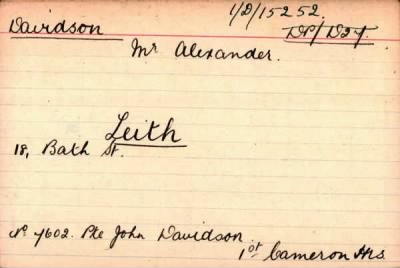 Davidson
1/D/15252.
DP/D27.
Mr Alexander.
Leith
18, Bath St.
No 7602. Pte John Davidson.
1st Cameron Hrs.